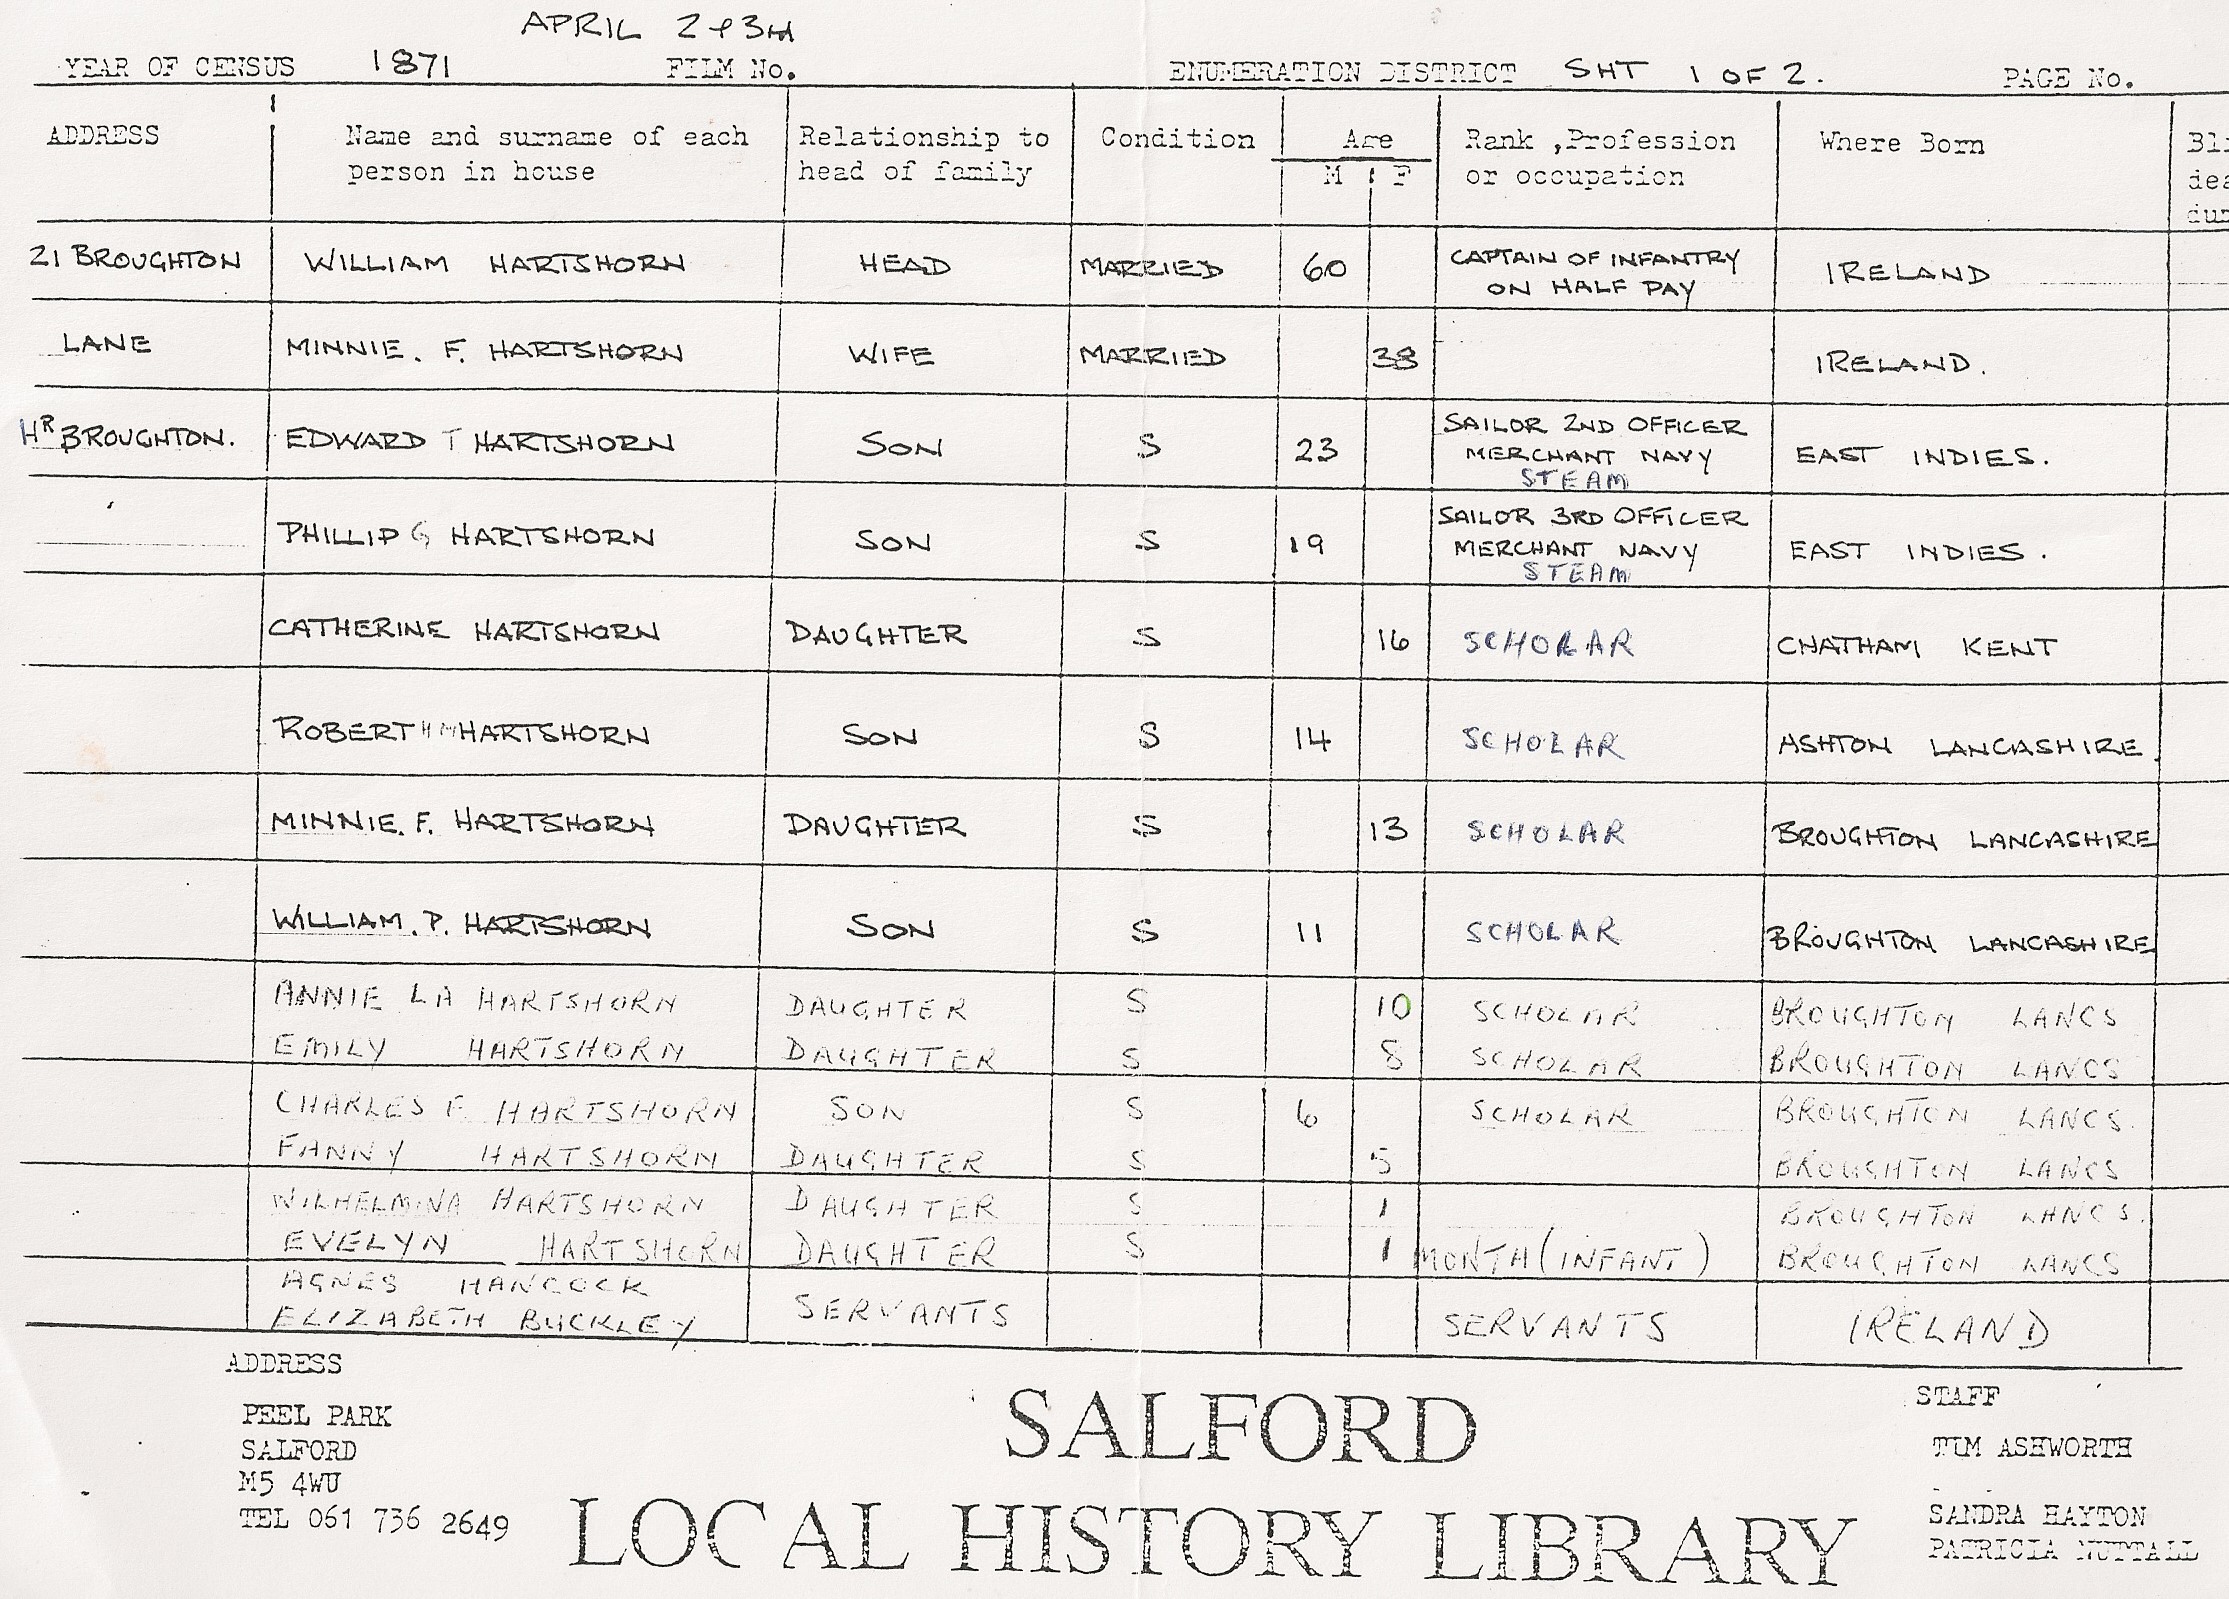 APRIL 2 & 3rd
YEAR OF CENSUS 1871 FILM No. ENUMERATION DISTRICT SHT 1 OF 2. PAGE No.
ADDRESS Name and surname of each person in house Relationship to head of family Condition Age M F Rank ,Profession or occupation Where Born
21 BROUGHTON WILLIAM HARTSHORN HEAD MARRIED 60 CAPTAIN OF INFANTRY ON HALF PAY IRELAND
LANE MINNIE. F. HARTSHORN WIFE MARRIED 38 IRELAND.
HR BROUGHTON. EDWARD T HARTSHORN SON S 23 SAILOR 2ND OFFICER MERCHANT NAVY STEAM EAST INDIES.
PHILLIP G HARTSHORN SON S 19 SAILOR 3RD OFFICER MERCHANT NAVY STEAM EAST INDIES.
CATHERINE HARTSHORN DAUGHTER S 16 SCHOLAR CHATHAM KENT
ROBERT H M HARTSHORN SON S 14 SCHOLAR ASHTON LANCASHIRE.
MINNIE. F. HARTSHORN DAUGHTER S 13 SCHOLAR BROUGHTON LANCASHIRE
WILLIAM. P. HARTSHORN SON S 11 SCHOLAR BROUGHTON LANCASHIRE
ANNIE LA HARTSHORN DAUGHTER S 10 SCHOLAR BROUGHTON LANCS
EMILY HARTSHORN DAUGHTER S 8 SCHOLAR BROUGHTON LANCS
CHARLES F HARTSHORN SON S 6 SCHOLAR BROUGHTON LANCS.
FANNY HARTSHORN DAUGHTER S 5 BROUGHTON LANCS
WILHELMINA HARTSHORN DAUGHTER S 1 BROUGHTON LANCS.
EVELYN HARTSHORN DAUGHTER S 1 MONTH (INFANT) BROUGHTON LANCS
AGNES HANCOCK
ELIZABETH BUCKLEY SERVANTS SERVANTS IRELAND
ADDRESS
PEEL PARK
SALFORD
M5 4WU
TEL 061 736 2649
SALFORD
LOCAL HISTORY LIBRARY
STAFF
TIM ASHWORTH
SANDRA HAYTON
PATRICIA NUTTALL